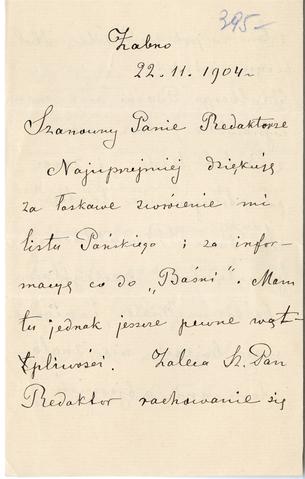 395-
Żabno
22.11.1904.
Szanowny Panie Redaktorze
Najuprzejmiej dziękuję
za łaskawe zwrócenie mi
listu Pańskiego i za infor-
macyę co do „Baśni". Mam
tu jednak jeszcze pewne wąt-
tpliwości. Zaleca Sz. Pan
Redaktor rachowanie się